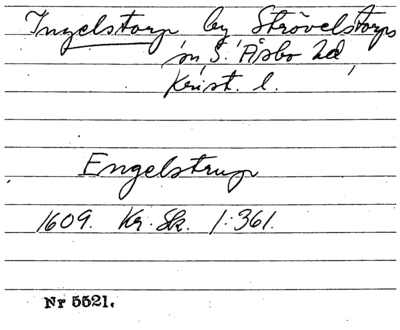 Ingelstorp by Strövelstorps
sn, S. Åsbo hd,
Krist. l.
Engelstrup
1609. Kr. Sk. 1:361.
Nr 5521.